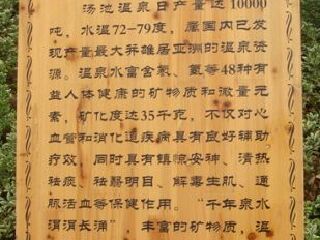 汤池温泉日产量达10000
吨，水温72-79度，属国内已发
现产量最大并雄居亚洲的温泉资
源。温泉水富含氡、氦等48种有
益人体健康的矿物质和微量元
素，矿化度达35千克，不仅对心
血管和消化道疾病具有良好辅助
疗效，同时具有镇惊安神、清热
祛痰、祛翳明目、解毒生肌、通
脉活血等保健作用。“千年泉水
涓涓长涌”，丰富的矿物质，温